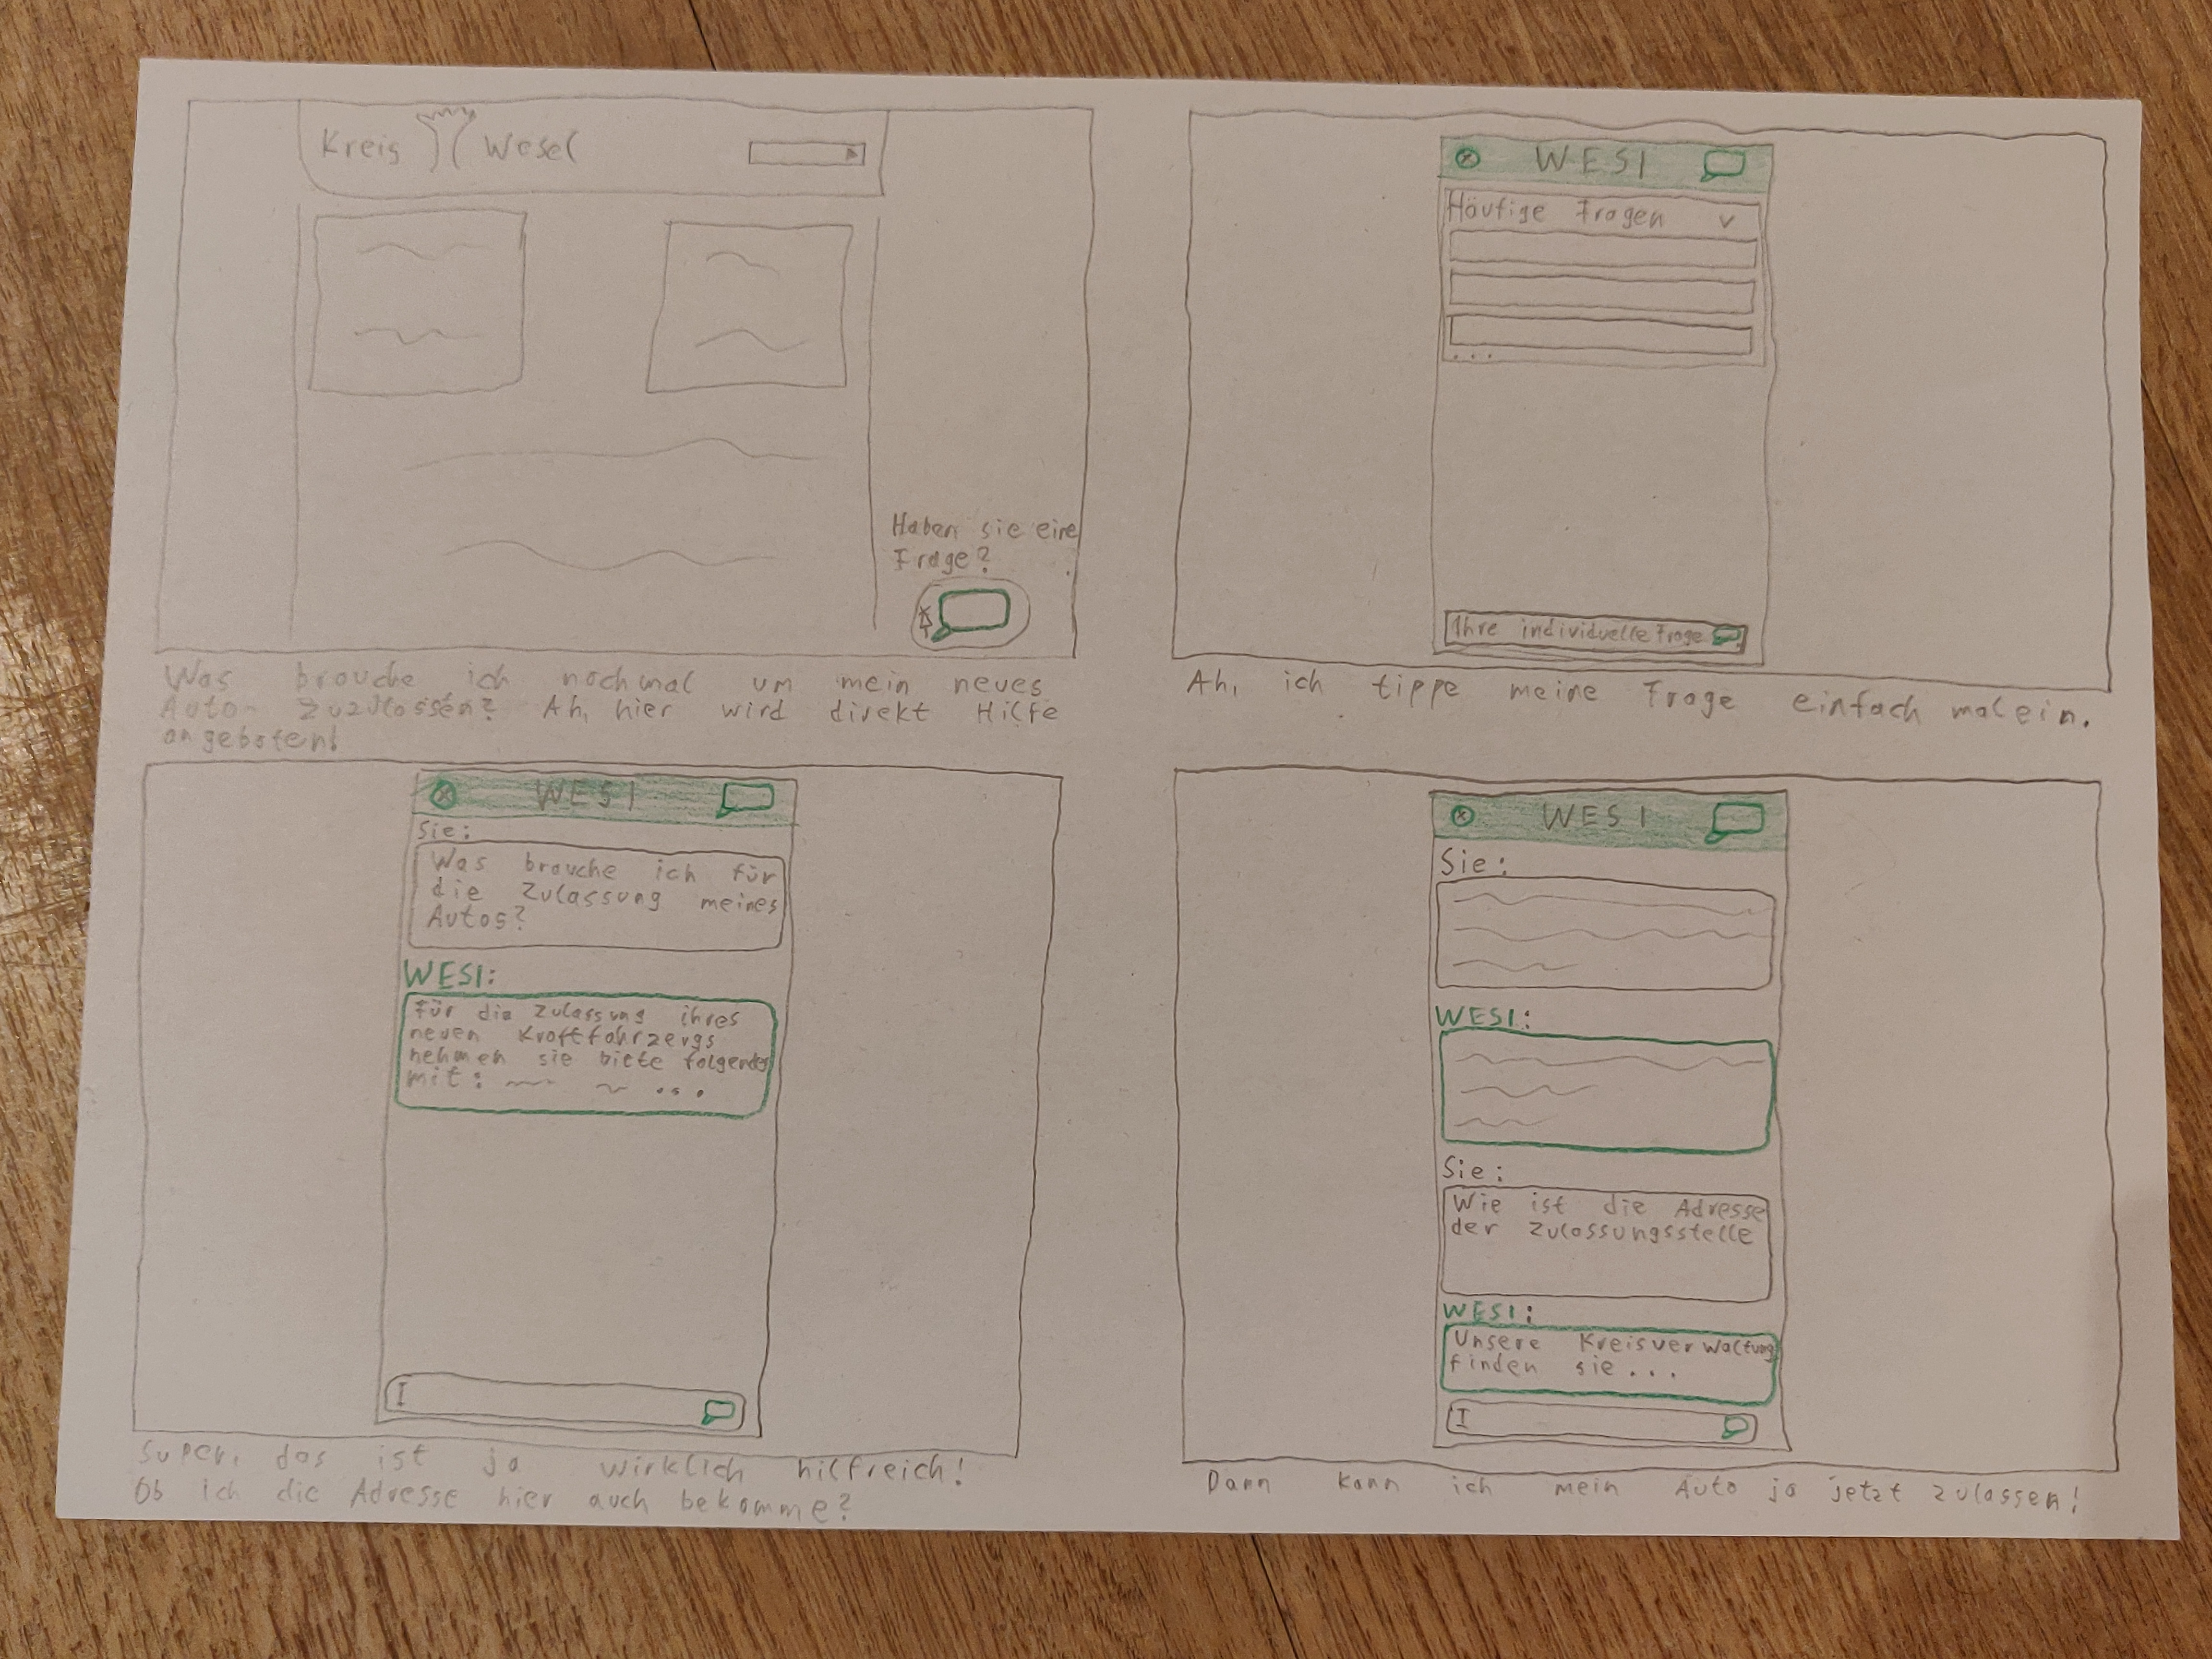 Kreis Wesel
Haben sie eine
Frage?
Was brauche ich nochmal um mein neues
Auto zuzulassen? Ah, hier wird direkt Hilfe
angeboten!
WESI
Häufige Fragen
...
Ihre individuelle Frage
Ah, ich tippe meine Frage einfach mal ein.
WESI
Sie:
Was brauche ich für
die Zulassung meines
Autos?
WESI:
Für die Zulassung ihres
neuen Kraftfahrzergs
nehmen sie bitte folgendes
mit: ...
Super, das ist ja wirklich hilfreich!
Ob ich die Adresse hier auch bekomme?
WESI
Sie:
WESI:
Sie:
Wie ist die Adresse
der Zulassungsstelle
WESI:
Unsere Kreisverwaltung
finden sie...
Dann kann ich mein Auto ja jetzt zulassen!